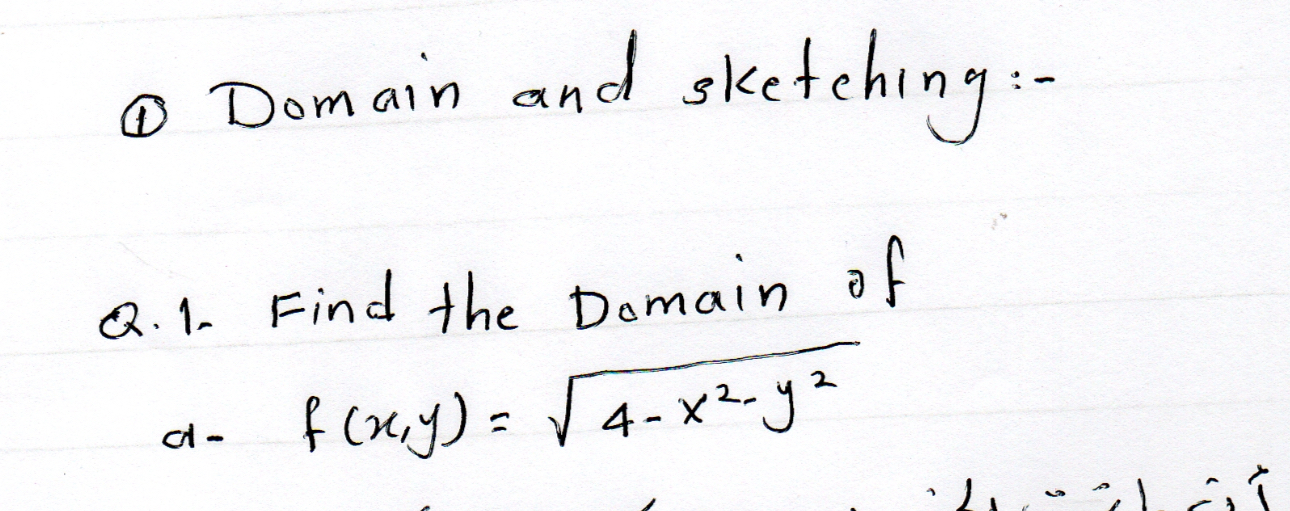 ① Domain and sketching:-
Q.1- Find the Domain of
a- f(x,y) = √4-x²-y²